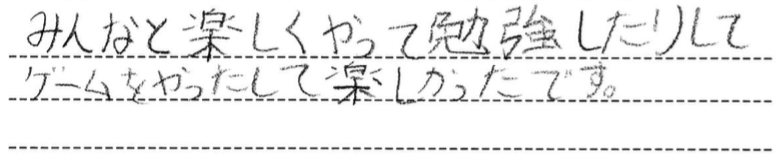 みんなと楽しくやって勉強したりして
ゲームをやったして楽しかったです。